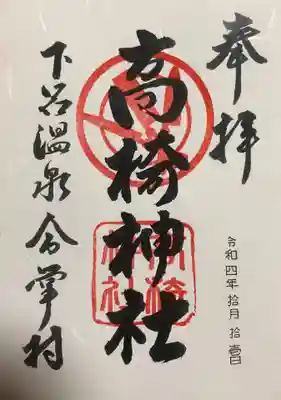 奉拝
高椅神社
下呂温泉合掌村
令和四年 拾月 拾壱日